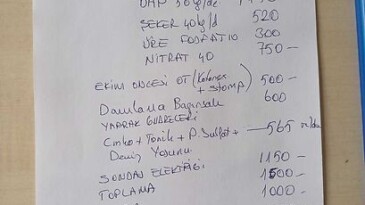 DAP 30 kg/de
ŞEKER 40 kg/d 520
ÜRE FOSFAT 10 300
NİTRAT 40 750 -
EKİM ÖNCESİ OT (Kolenex + Stomp) 500 -
Damlama Bağırsak 600
YAPRAK GÜBRELERİ
Çinko + Tonik + P. Sülfat + 565
Deniz Yosunu
SONDAJ ELEKTİĞİ 1150 -
TOPLAMA 1500 -
1000 -